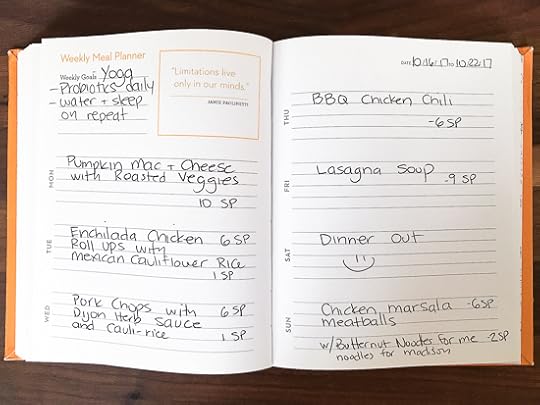 Weekly Meal Planner
Weekly Goals Yoga
- Probiotics daily
- water + sleep
on repeat
"Limitations live
only in our minds."
JAMIE PAOLINETTI
MON
Pumpkin Mac + Cheese
with Roasted Veggies
10 SP
TUE
Enchilada Chicken 6 SP
Roll ups with
Mexican Cauliflower Rice
1 SP
WED
Pork Chops with 6 SP
Dijon Herb Sauce
and Cauli-rice 1 SP
DATE 10/16/17 TO 10/22/17
THU
BBQ Chicken Chili
-6 SP
FRI
Lasagna Soup -9 SP
SAT
Dinner Out
SUN
Chicken marsala -6SP
meatballs
w/Butternut Noodles for me -2SP
noodles for madison